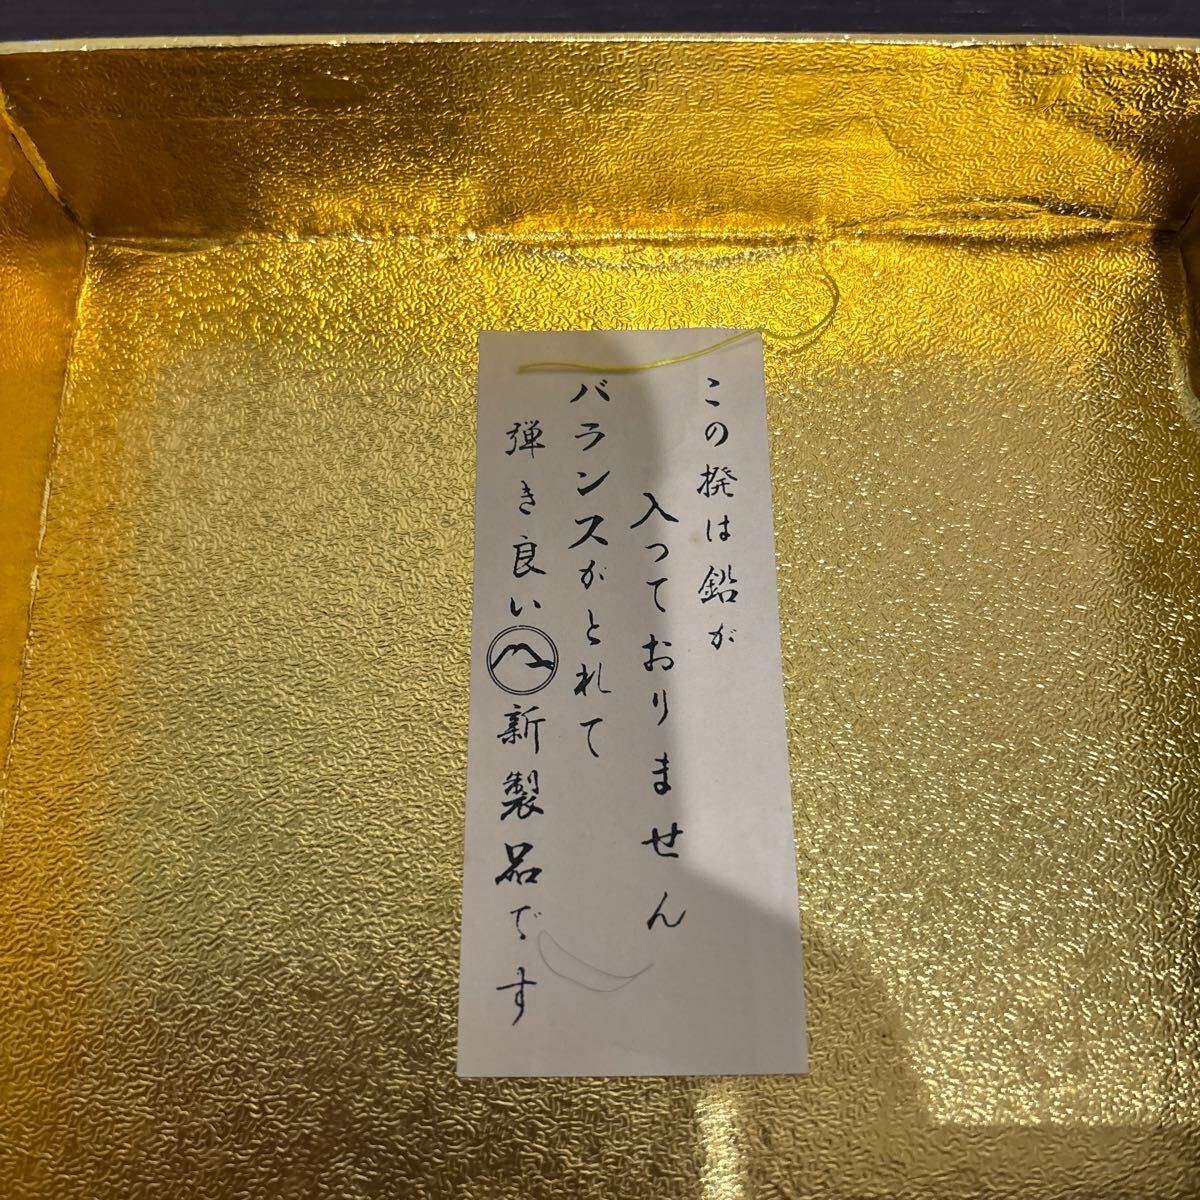 この撥は鉛が
入っておりません
バランスがとれて
弾き良い新製品です